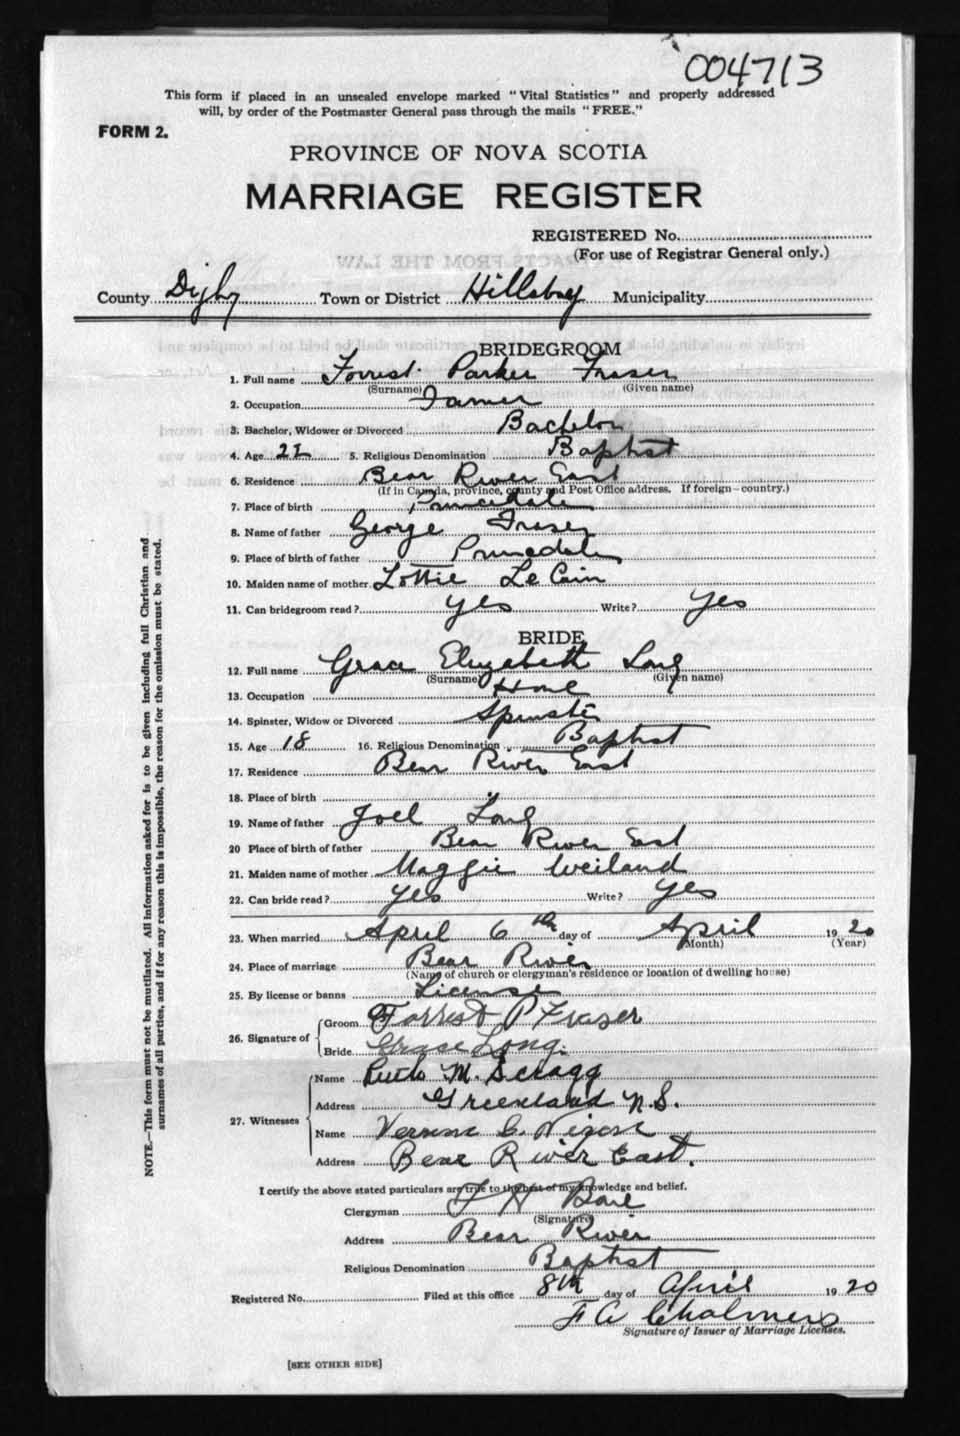 004713
This form if placed in an unsealed envelope marked "Vital Statistics" and properly addressed
will, by order of the Postmaster General pass through the mails "FREE."
FORM 2.
PROVINCE OF NOVA SCOTIA
MARRIAGE REGISTER
REGISTERED No.
(For use of Registrar General only.)
County Digby Town or District Hillsburg Municipality
BRIDEGROOM
1. Full name Forrest Parker Fraser
(Surname) (Given name)
2. Occupation Farmer
3. Bachelor, Widower or Divorced Bachelor
4. Age 22 5. Religious Denomination Baptist
6. Residence Bear River East
(If in Canada, province, county and Post Office address. If foreign—country.)
7. Place of birth Princedale
8. Name of father George Fraser
9. Place of birth of father Princedale
10. Maiden name of mother Lottie Le Cain
11. Can bridegroom read? yes Write? yes
BRIDE
12. Full name Grace Elizabeth Long
(Surname) (Given name)
13. Occupation Home
14. Spinster, Widow or Divorced Spinster
15. Age 18 16. Religious Denomination Baptist
17. Residence Bear River East
18. Place of birth "
19. Name of father Joel Long
20 Place of birth of father Bear River East
21. Maiden name of mother Maggie Weiland
22. Can bride read? yes Write? yes
23. When married April 6th day of April 1920
(Month) (Year)
24. Place of marriage Bear River
(Name of church or clergyman's residence or location of dwelling house)
25. By license or banns License
26. Signature of Groom Forrest P Frazer
Bride Grace Long.
27. Witnesses Name Ruth M. Scragg
Address Greenland N.S.
Name Vernon C. Nixon
Address Bear River East.
I certify the above stated particulars are true to the best of my knowledge and belief.
Clergyman
(Signature)
Address Bear River
Religious Denomination Baptist
Registered No. Filed at this office 8th day of April 1920
F A Chalmers
Signature of Issuer of Marriage Licenses.
[SEE OTHER SIDE]
NOTE.—This form must not be mutilated. All information asked for is to be given including full Christian and
surnames of all parties, and if for any reason this is impossible, the reason for the omission must be stated.